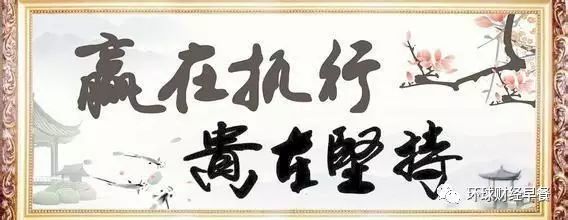 赢在执行
貴在堅持
环球财经早餐